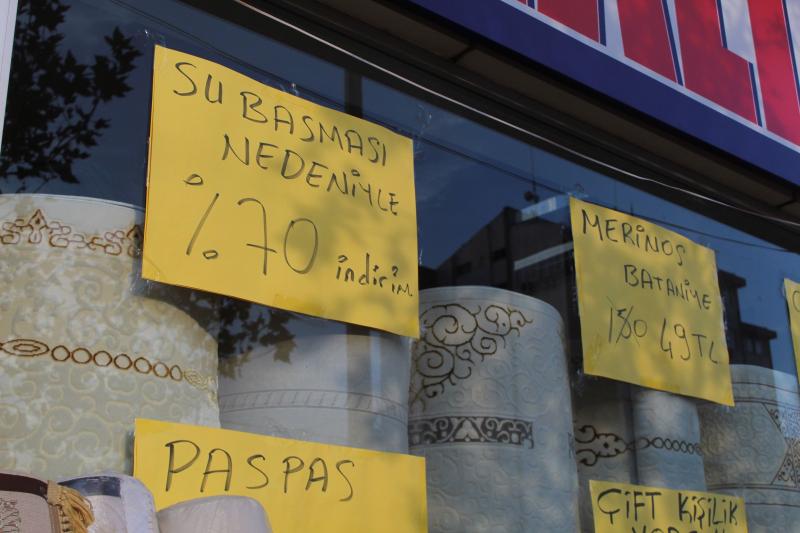 SU BASMASI
NEDENİYLE
%70 indirim
MERİNOS
BATANİYE
150 49 TL
PASPAS
ÇİFT KİŞİLİK